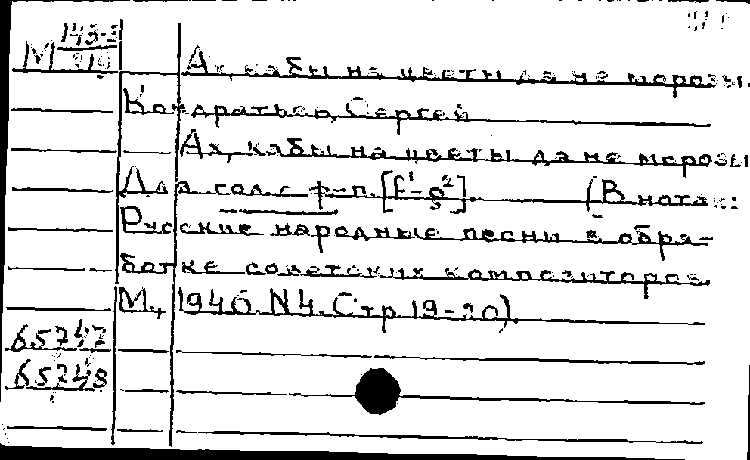 М 143-3
Ах, кабы на цветы да не морозы.
Кондратьев, Сергей
Ах, кабы на цветы да не морозы
Для гол. с ф-п. [f¹-g²]. (В нотах:
Русские народные песни в обра-
ботке советских композиторов.
М., 1946. N4. Стр. 19-20).
65747
65748